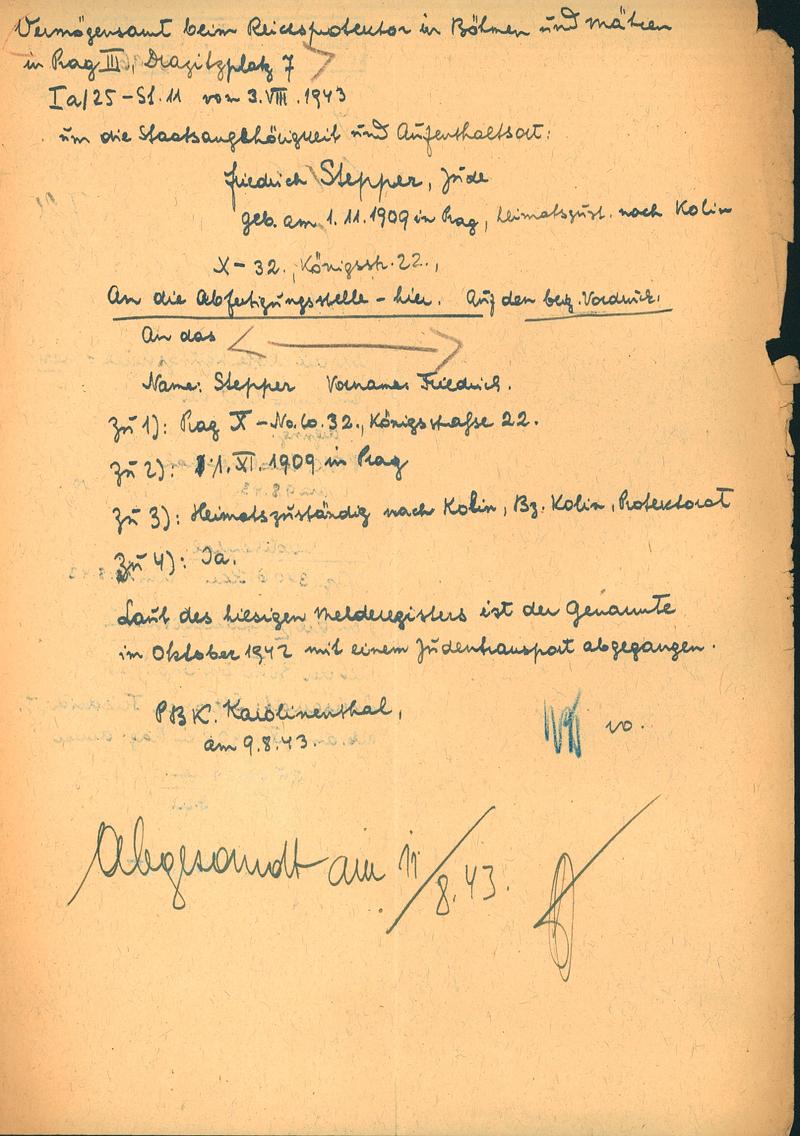 Vermögensamt beim Reichsprotektor in Böhmen und Mähren
in Prag III, Dražitzplatz 7
Ia/25-St.11 vom 3.VIII.1943
um die Staatsangehörigkeit und Aufenthaltsort:
Friedrich Stepper, Jude
geb. am 1.11.1909 in Prag, heimatszust. nach Kolin
X-32., Königsstr. 22.,
An die Abfertigungsstelle - hier. Auf den beig. Vordruck.
An das
Name: Stepper Vorname: Friedrich.
Zu 1): Prag X - No. 32., Königsstraße 22.
Zu 2): 1.XI.1909 in Prag
Zu 3): Heimatszuständig nach Kolin, Bz. Kolin, Protektorat
Zu 4): Ja.
Laut des hiesigen Melderegisters ist der Genannte
im Oktober 1942 mit einem Judentransport abgegangen.
PBK. Karolinenthal,
am 9.8.43.
Abgesandt am 11/8.43.